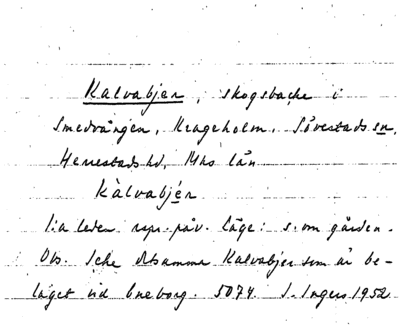 Kalvabjer, skogsbacke i
Smedvången, Krageholm, Sövestads sn,
Herrestads hd, Mhs län
Kàlvabjér
1:a leden rep. påv. läge: s. om gården.
Obs. Icke detsamma Kalvabjer som är be-
läget vid Eneborg. 5074. I. Ingers 1952